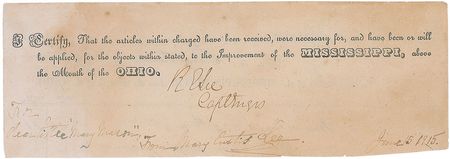 I Certify, That the articles within charged have been received, were necessary for, and have been or will
be applied, for the objects within stated, to the Improvement of the MISSISSIPPI, above
the Mouth of the OHIO.
R E Lee
Capt Engrs
To
"Mary Marion"
From Mary Custis Lee
June 5 1915.